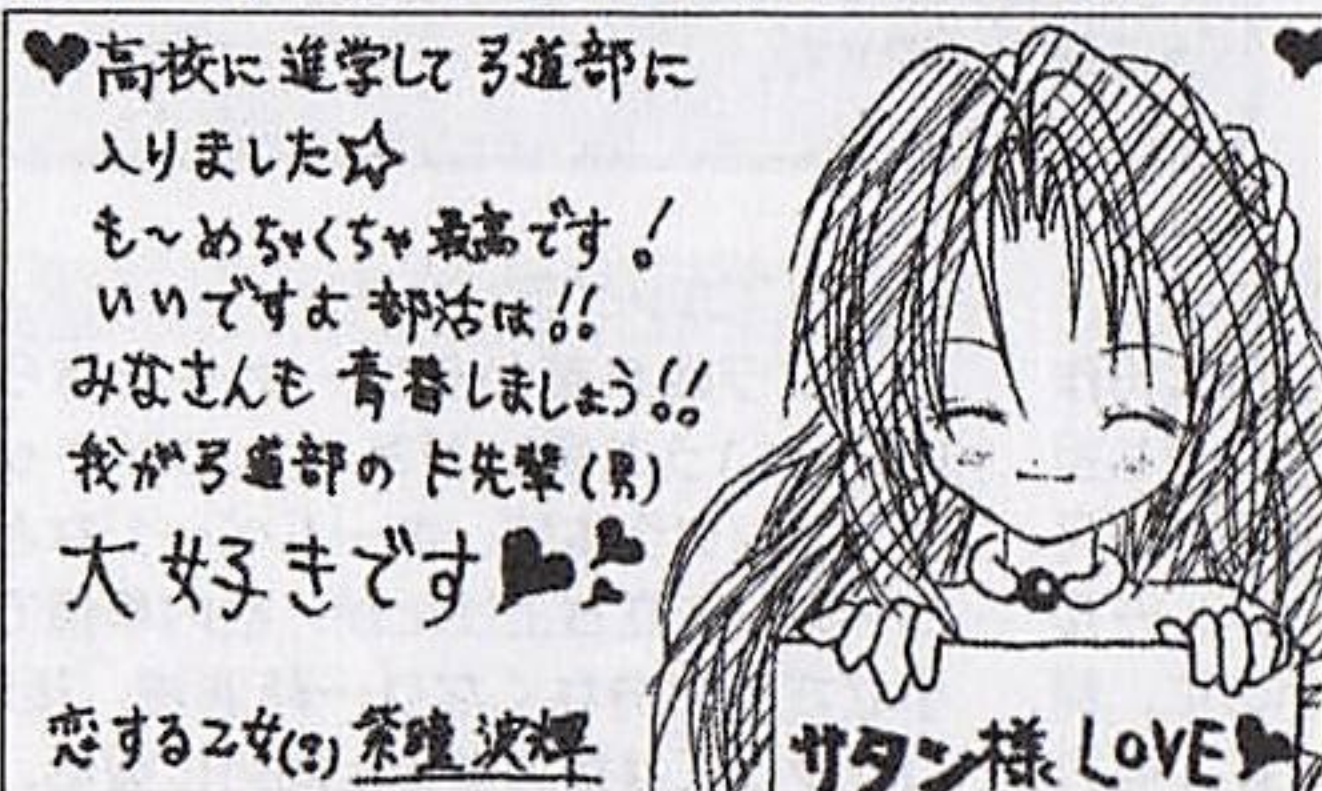 ♥高校に進学して弓道部に
入りました☆
も〜めちゃくちゃ最高です!
いいですよ部活は!!
みなさんも青春しましょう!!
我が弓道部のF先輩(男)
大好きです♥♥
恋する乙女(?)紫瞳波輝
サタン様LOVE♥